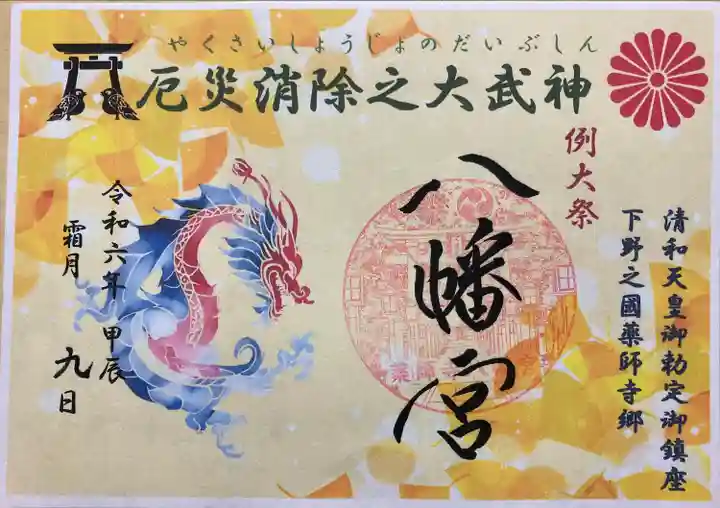 やくさいしょうじょのだいぶしん
厄災消除之大武神
清和天皇御勅定御鎮座
下野之國薬師寺郷
例大祭
八幡宮
令和六年 甲辰
霜月 九日